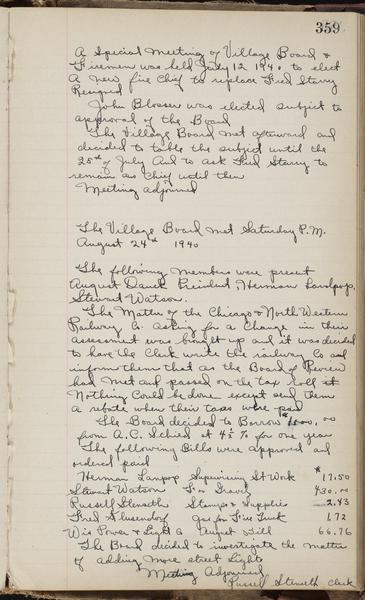 359
A Special Meeting of Village Board &
Firemen was held July 12 1940 to elect
a new fire Chief to replace Fred Starry
Resigned
John Blosser was elected subject to
approval of the Board
The Village Board met afterward and
decided to table the subject until the
25th of July And to ask Fred Starry to
remain as Chief until then
Meeting adjourned
The Village Board met Saturday P.M.
August 24th 1940
The following members were present
August Dauck President Herman
Stewart Watson.
The Matter of the Chicago & North Western
Railway Co asking for a Change in their
assessment was bought up and it was decided
to have the Clerk write the railway Co and
inform them that as the Board of Review
had met and passed on the tax roll at
Nothing Could be done except send them
a rebate when their taxes were paid
The Board decided to Borrow $1000.00
from A.C. Schied at 4½ % for one year
The following Bills were approved and
ordered paid
Herman Supervising St Work $17.50
Stewart Watson Gravel 430.00
Russell Stamps & Supplies 2.43
Fred gas for Fire Truck 1.72
Wis Power & Light Co August Bill 66.76
The Board decided to investigate the matter
of adding more street lights
Meeting Adjourned
Russell Clerk